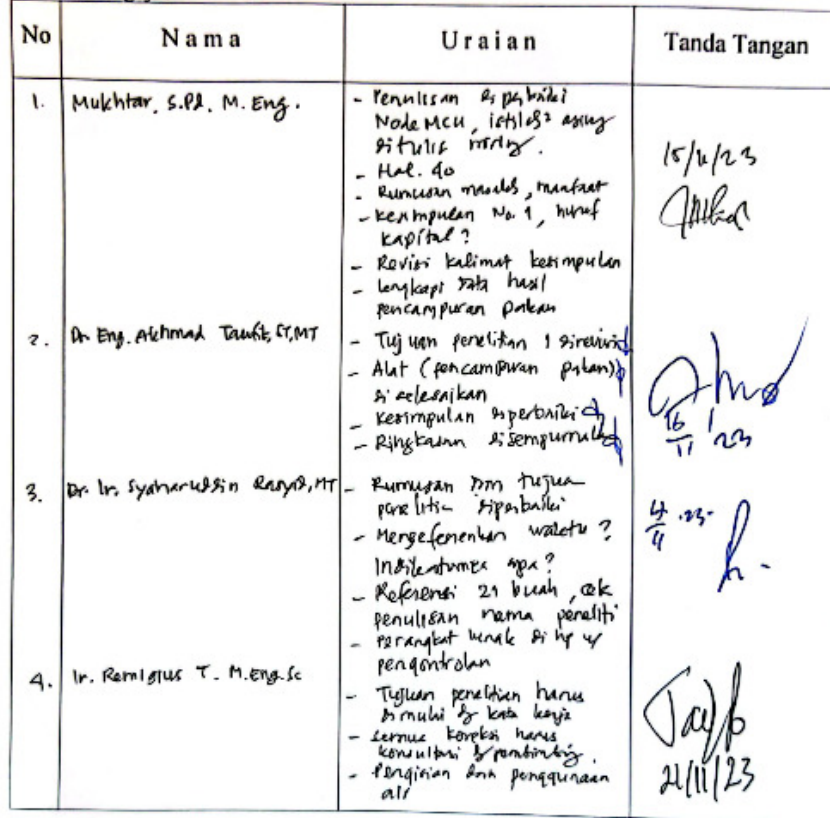 No Nama Uraian Tanda Tangan
1. Mukhtar, S.Pd. M. Eng.
- Penulisan diperbaiki
NodeMCU, istilah² asing
ditulis miring.
- Hal. 40
- Rumusan masalah, manfaat
- Kesimpulan No. 1, huruf
kapital?
- Revisi kalimat kesimpulan
- lengkapi data hasil
pencampuran pakan
15/11/23
2. Dr. Eng. Akhmad Taufik, ST, MT
- Tujuan penelitian 1 direvisi
- Alat (pencampuran pakan)
diselesaikan
- Kesimpulan diperbaiki
- Ringkasan disempurnakan
16/11 23
3. Dr. Ir. Syaharuddin Rasyid, MT
- Rumusan dan tujuan
penelitian diperbaiki
- Mengefisienkan waktu?
Indikatornya apa?
- Referensi 21 buah, cek
penulisan nama peneliti
- Perangkat lunak di hp
pengontrolan
23
4. Ir. Remigius T. M.Eng.Sc
- Tujuan penelitian harus
dimulai kata kerja
- semua koreksi harus
konsultasi pembimbing.
- Pengisian dan penggunaan
air
21/11/23